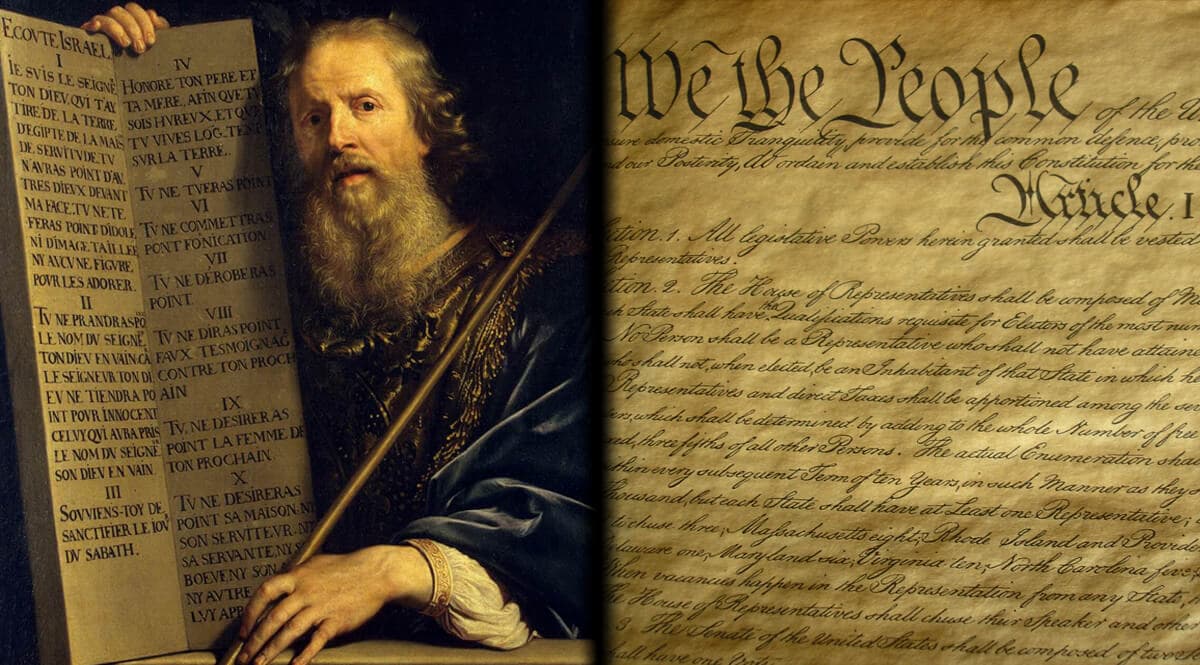 ECOVTE ISRAEL.
I
IE SVIS LE SEIGNE
TON DIEV, QVI T'AY
TIRE DE LA TERRE
D'EGIPTE DE LA MAIS
DE SERVITVDE. TV
N'AVRAS POINT D'AV
TRES DIEVX DEVANT
MA FACE. TV NE TE
FERAS POINT D'IDOLE
NI D'IMAGE TAILLEE
NY AVCVNE FIGVRE
POVR LES ADORER.
II
TV NE PRANDRAS PO
LE NOM DV SEIGNE
TON DIEV EN VAIN. CA
LE SEIGNEVR TON DI
EV NE TIENDRA PO
INT POVR INNOCENT
CELVY QVI AVRA PRIS
LE NOM DV SEIGNE
SON DIEV EN VAIN.
III
SOVVIENS-TOY DE
SANCTIFIER LE IOV
DV SABATH.
IV
HONORE TON PERE ET
TA MERE, AFIN QVE TV
SOIS HVREVX, ET QVE
TV VIVES LOG-TENT
SVR LA TERRE.
V
TV NE TVERAS POINT
VI
TV NE COMMETTRAS
POINT FONICATION.
VII
TV NE DEROBERAS
POINT.
VIII
TV NE DIRAS POINT
FAVX TESMOIGNAG
CONTRE TON PROCH
AIN
IX
TV, NE DESIRERAS
POINT LA FEMME DE
TON PROCHAIN.
X
TV NE DESIRERAS
POINT SA MAISON, NI
SON SERVITEVR, NI
SA SERVANTE, NY S
BOEVF, NY SON
NY AVTRE
LVY APP
We the People of the U
sure domestic Tranquility, provide for the common defence, pro
nd our Posterity, do ordain and establish this Constitution for th
Article. I
ction. 1. All legislative Powers herein granted shall be vested
Representatives.
ction. 2. The House of Representatives shall be composed of M
h State shall have the Qualifications requisite for Electors of the most num
No Person shall be a Representative who shall not have attain
who shall not, when elected, be an Inhabitant of that State in which h
Representatives and direct Taxes shall be apportioned among the se
ers, which shall be determined by adding to the whole Number of free
ed, three fifths of all other Persons. The actual Enumeration sha
thin every subsequent Term of ten Years, in such Manner as they s
housand, but each State shall have at Least one Representative;
to chuse three, Massachusetts eight, Rhode Island and Provide
laware one, Maryland six, Virginia ten, North Carolina five,
When vacancies happen in the Representation from any State,
The House of Representatives shall chuse their Speaker and other
3. The Senate of the United States shall be composed of two
all have one Vote.